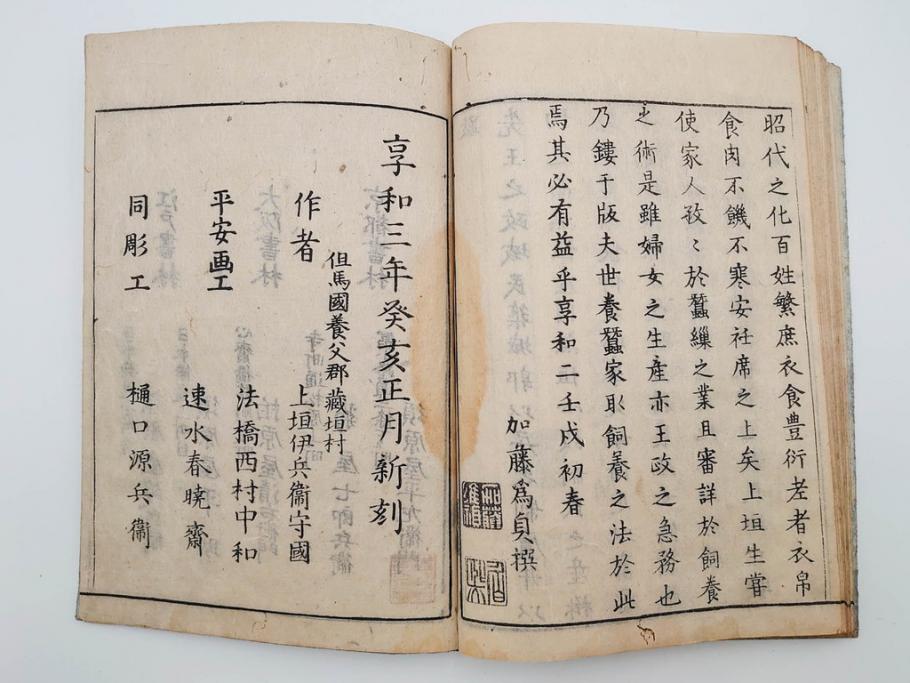 昭代之化百姓繁庶衣食豊衍老者衣帛
食肉不饑不寒安社席之上矣上垣生嘗
使家人孜〻於蠶繅之業且審詳於飼養
之術是雖婦女之生産亦王政之急務也
乃鏤于版夫世養蠶家取飼養之法於此
焉其必有益乎享和二壬戌初春
加藤爲貞撰
享和三年癸亥正月新刻
但馬國養父郡蔵垣村
作者 上垣伊兵衞守國
平安画工 法橋西村中和
速水春曉齋
同彫工 樋口源兵衞